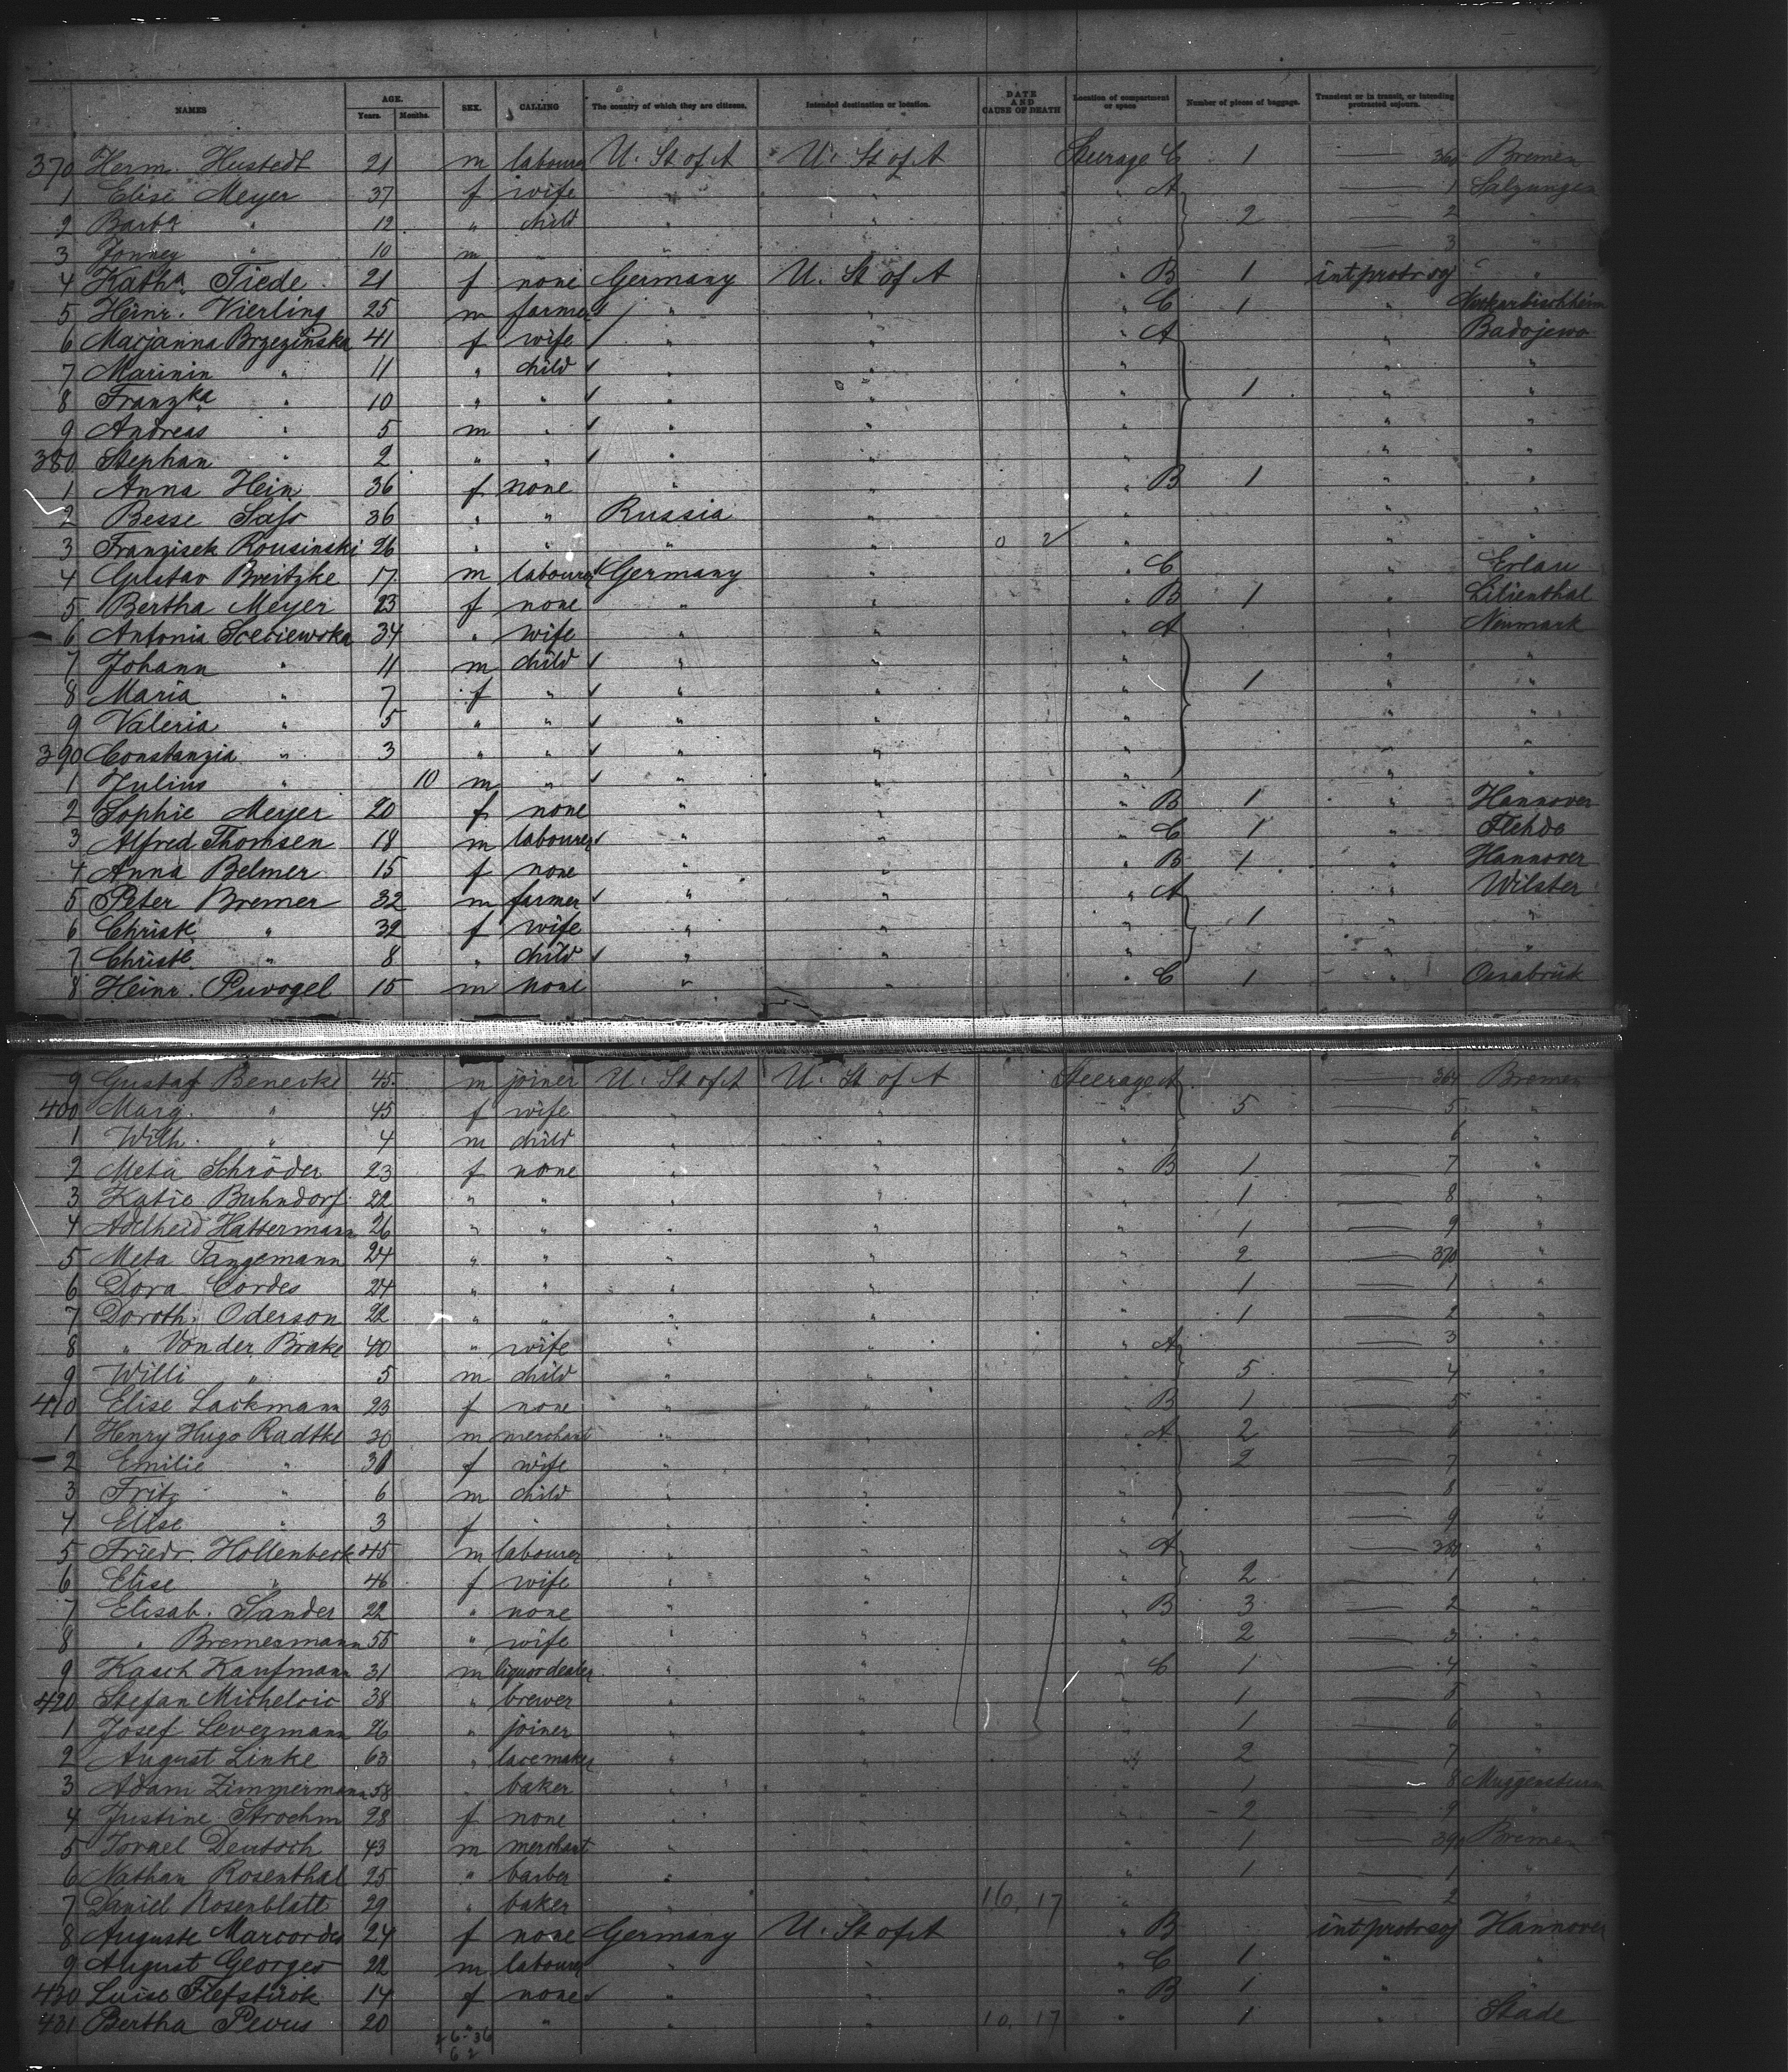 NAMES AGE. Years. Months. SEX. CALLING The country of which they are citizens. Intended destination or location. DATE AND CAUSE OF DEATH Location of compartment or space Number of pieces of baggage. Transient or in transit, or intending protracted sojourn.
370 Herm. Hustedt 21 m labourer U. St of A U. St of A Steerage C 1 360 Bremen
1 Elise Meyer 37 f wife " " " A — 1 Salzungen
2 Barba " 12 " child " " " 2 — 2 "
3 Jonney " 10 m " " " " — 3 "
4 Katha. Tiede 21 f none Germany U. St of A " B 1 intprotrsoj "
5 Heinr. Vierling 25 m farmer " " " C 1 " Neckarbischheim
6 Marjanna Brzezinska 41 f wife " " " A " Badojewo
7 Marinin " 11 " child " " " " "
8 Franzka " 10 " " " " " 1 " "
9 Andreas " 5 m " " " " " "
380 Stephan " 2 " " " " " " "
1 Anna Hein 36 f none " " " B 1 " "
2 Besse Sass 36 " " Russia " " " "
3 Franzisek Rousinski 26 " " " " 0 2 " " "
4 Gustav Breitzke 17 m labourer Germany " " C " Erlau
5 Bertha Meyer 23 f none " " " B 1 " Lilienthal
6 Antonia Sceciewska 34 " wife " " " A " Neumark
7 Johann " 11 m child " " " " "
8 Maria " 7 f " " " " 1 " "
9 Valeria " 5 " " " " " " "
390 Constanzia " 3 " " " " " " "
1 Julius " 10 m " " " " " "
2 Sophie Meyer 20 f none " " " B 1 " Hannover
3 Alfred Thomsen 18 m labourer " " " C 1 " Flehde
4 Anna Belmer 15 f none " " " B 1 " Hannover
5 Peter Bremer 32 m farmer " " " A " Wilster
6 Christ. " 32 f wife " " " 1 " "
7 Christe. " 8 " child " " " " "
8 Heinr. Puvogel 15 m none " " " C 1 " Osnabrük
9 Gustaf Benecke 45 m joiner U. St of A U. St of A Steerage A — 364 Bremen
400 Marg. " 45 f wife " " " 5 — 5 "
1 Wilh. " 4 m child " " " — 6 "
2 Meta Schröder 23 f none " " " B 1 — 7 "
3 Katie Buhndorf 22 " " " " " 1 — 8 "
4 Adelheid Hattermann 26 " " " " " 1 — 9 "
5 Meta Tangemann 24 " " " " " 2 — 370 "
6 Dora Cordes 24 " " " " " 1 — 1 "
7 Doroth. Oderson 22 " " " " " 1 — 2 "
8 " Von der Brake 40 " wife " " " A — 3 "
9 Willi " 5 m child " " " 5 — 4 "
410 Elise Lackmann 23 f none " " " B 1 — 5 "
1 Henry Hugo Radtke 30 m merchant " " " A 2 — 6 "
2 Emilie " 31 f wife " " " 2 — 7 "
3 Fritz " 6 m child " " " — 8 "
4 Elise " 3 f " " " " — 9 "
5 Friedr. Hollenbeck 45 m labourer " " " A — 380 "
6 Elise " 46 f wife " " " 2 — 1 "
7 Elisab. Sander 22 " none " " " B 3 — 2 "
8 " Bremermann 55 " wife " " " 2 — 3 "
9 Kasch Kaufmann 31 m liquordealer " " " C 1 — 4 "
420 Stefan Michelcic 38 " brewer " " " 1 — 5 "
1 Josef Levermann 26 " joiner " " " 1 — 6 "
2 August Linke 63 " lacemaker " " " 2 — 7 "
3 Adam Zimmermann 58 " baker " " " 1 — 8 Muggensturm
4 Justine Stroehm 28 f none " " " 2 — 9 "
5 Israel Deutsch 43 m merchant " " " 1 — 390 Bremen
6 Nathan Rosenthal 25 " barber " " " 1 — 1 "
7 Daniel Rosenblatt 29 " baker " " 16, 17 " — 2 "
8 Auguste Marcordes 24 f none Germany U. St of A " B intprotrsoj Hannover
9 August Georges 22 m labourer " " " C 1 " "
430 Luise Tiefstück 14 f none " " " B 1 " "
431 Bertha Pevus 20 " " " " 10, 17 " 1 " Stade